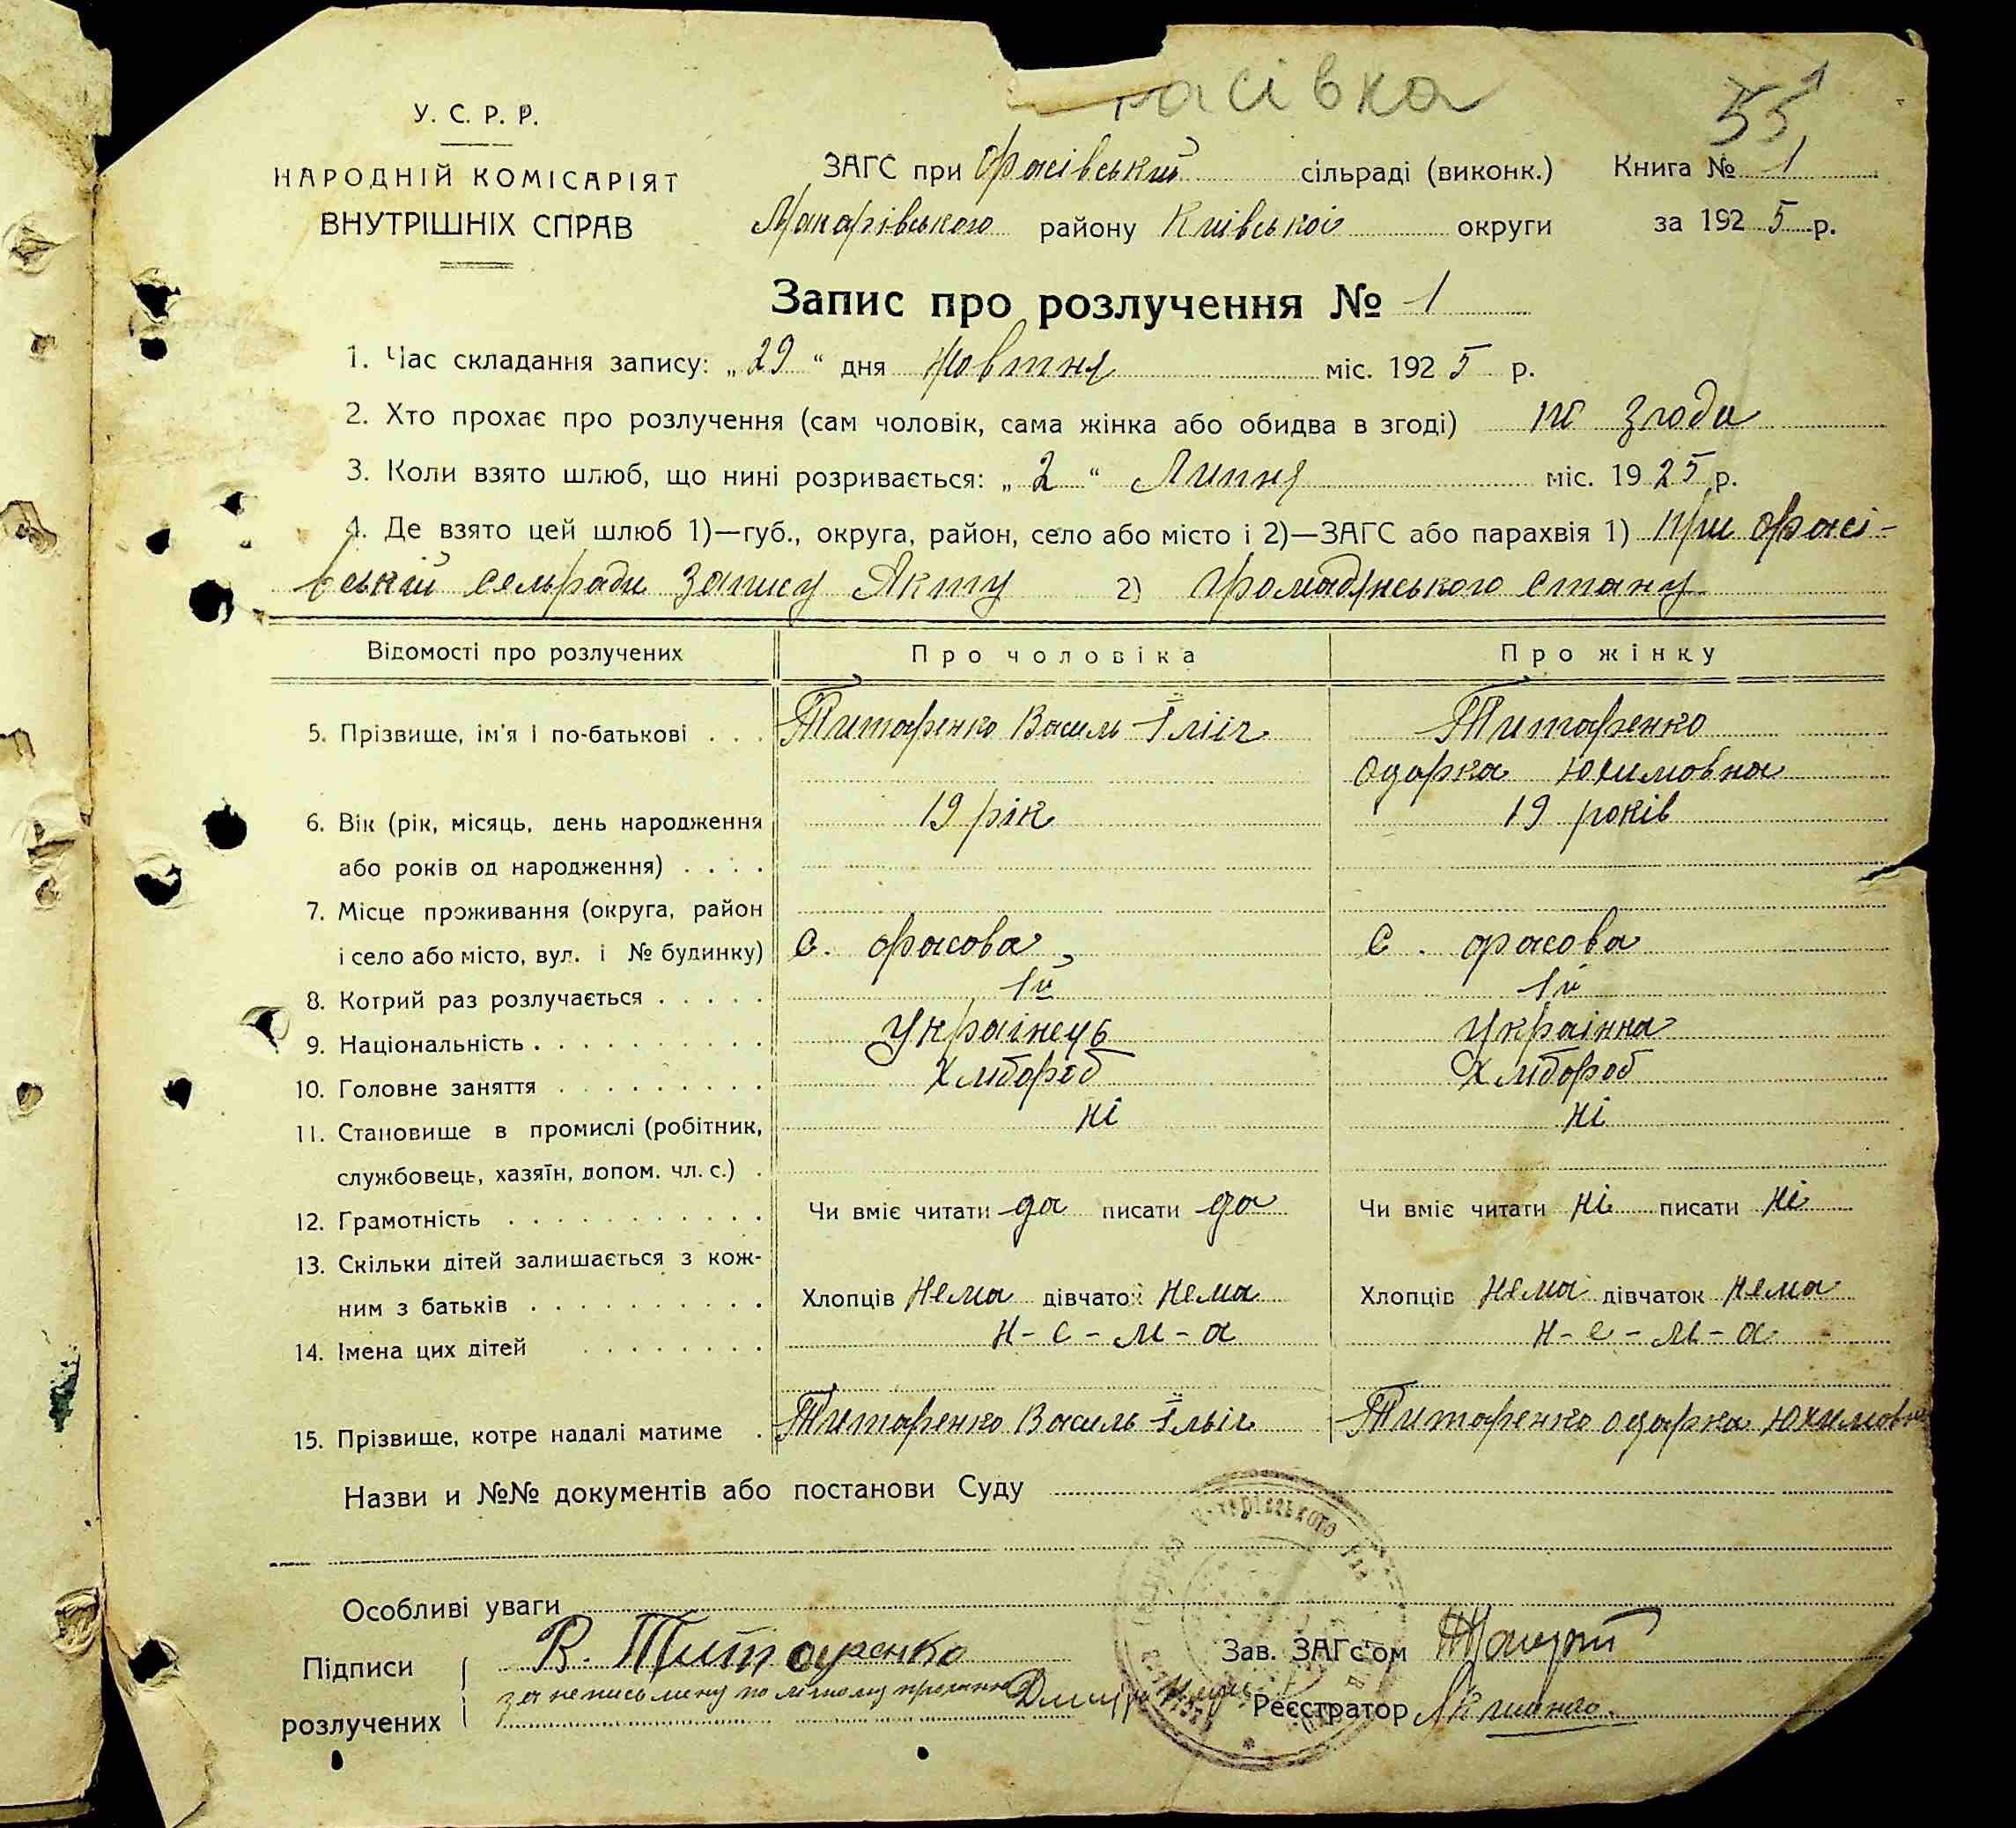 расівка
55
У. С. Р. Р.
НАРОДНІЙ КОМІСАРІЯТ
ВНУТРІШНІХ СПРАВ
ЗАГС при Фрасівський сільраді (виконк.) Книга № 1
Макарівського району Київськоі округи за 1925 р.
Запис про розлучення № 1
1. Час складання запису: „29“ дня Жовтня міс. 1925 р.
2. Хто прохає про розлучення (сам чоловік, сама жінка або обидва в згоді) по згоди
3. Коли взято шлюб, що нині розривається: „2“ Липня міс. 1925 р.
4. Де взято цей шлюб 1)—губ., округа, район, село або місто і 2)—ЗАГС або парахвія 1) при Фрасі-
вській сельради Запису Якту 2) Громадянського стану
Відомості про розлучених Про чоловіка Про жінку
5. Прізвище, ім'я і по-батькові . . . Титаренко Василь Ілліч Титаренко
Одарка Юхимовна
6. Вік (рік, місяць, день народження 19 рік 19 років
або років од народження) . . . .
7. Місце проживання (округа, район
і село або місто, вул. і № будинку) с. Фрасова с. Фрасова
8. Котрий раз розлучається . . . . . 1й 1й
9. Національність . . . . . . . . . . Украінець Украінка
10. Головне заняття . . . . . . . . . Хлібороб Хлібороб
11. Становище в промислі (робітник, ні ні
службовець, хазяїн, допом. чл. с.) .
12. Грамотність . . . . . . . . . . . Чи вміє читати да писати да Чи вміє читати ні писати ні
13. Скільки дітей залишається з кож-
ним з батьків . . . . . . . . . . Хлопців Нема дівчаток Нема Хлопців Нема дівчаток Нема
14. Імена цих дітей . . . . . . . . Н-е-м-а Н-е-м-а
15. Прізвище, котре надалі матиме . Титаренко Василь Ільіч Титаренко Одарка Юхимовна
Назви и №№ документів або постанови Суду
Особливі уваги
Підписи В. Титаренко Зав. ЗАГс'ом
розлучених за неписьмену по лічному проханню Реєстратор